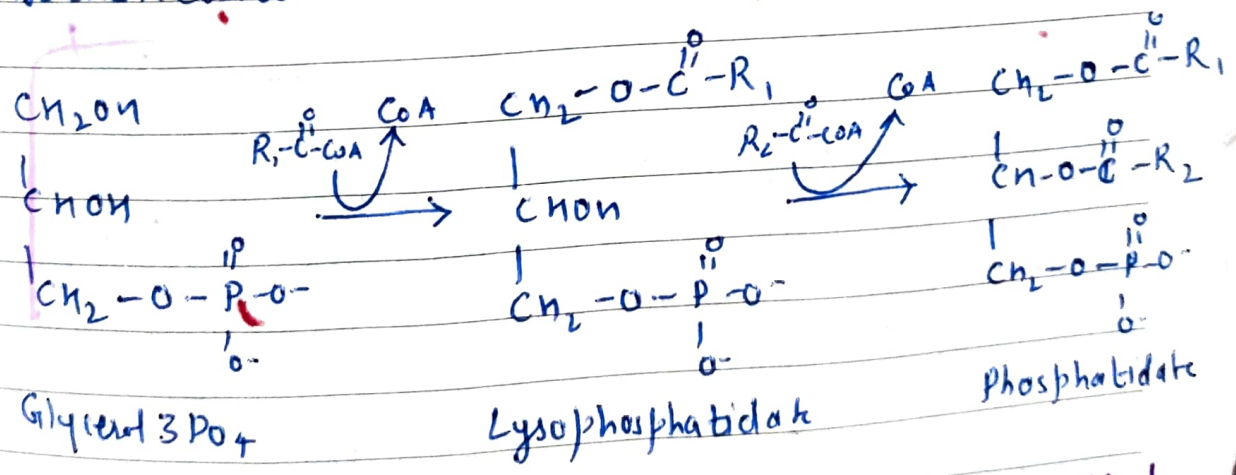 CH2OH
|
CHOH
|
CH2-O-P-O-
O
O-
Glycerol 3 PO4
R1-C-CoA
O
CoA
CH2-O-C-R1
O
|
CHOH
|
CH2-O-P-O-
O
O-
Lysophosphatidate
R2-C-CoA
O
CoA
CH2-O-C-R1
O
|
CH-O-C-R2
O
|
CH2-O-P-O-
O
O-
Phosphatidate